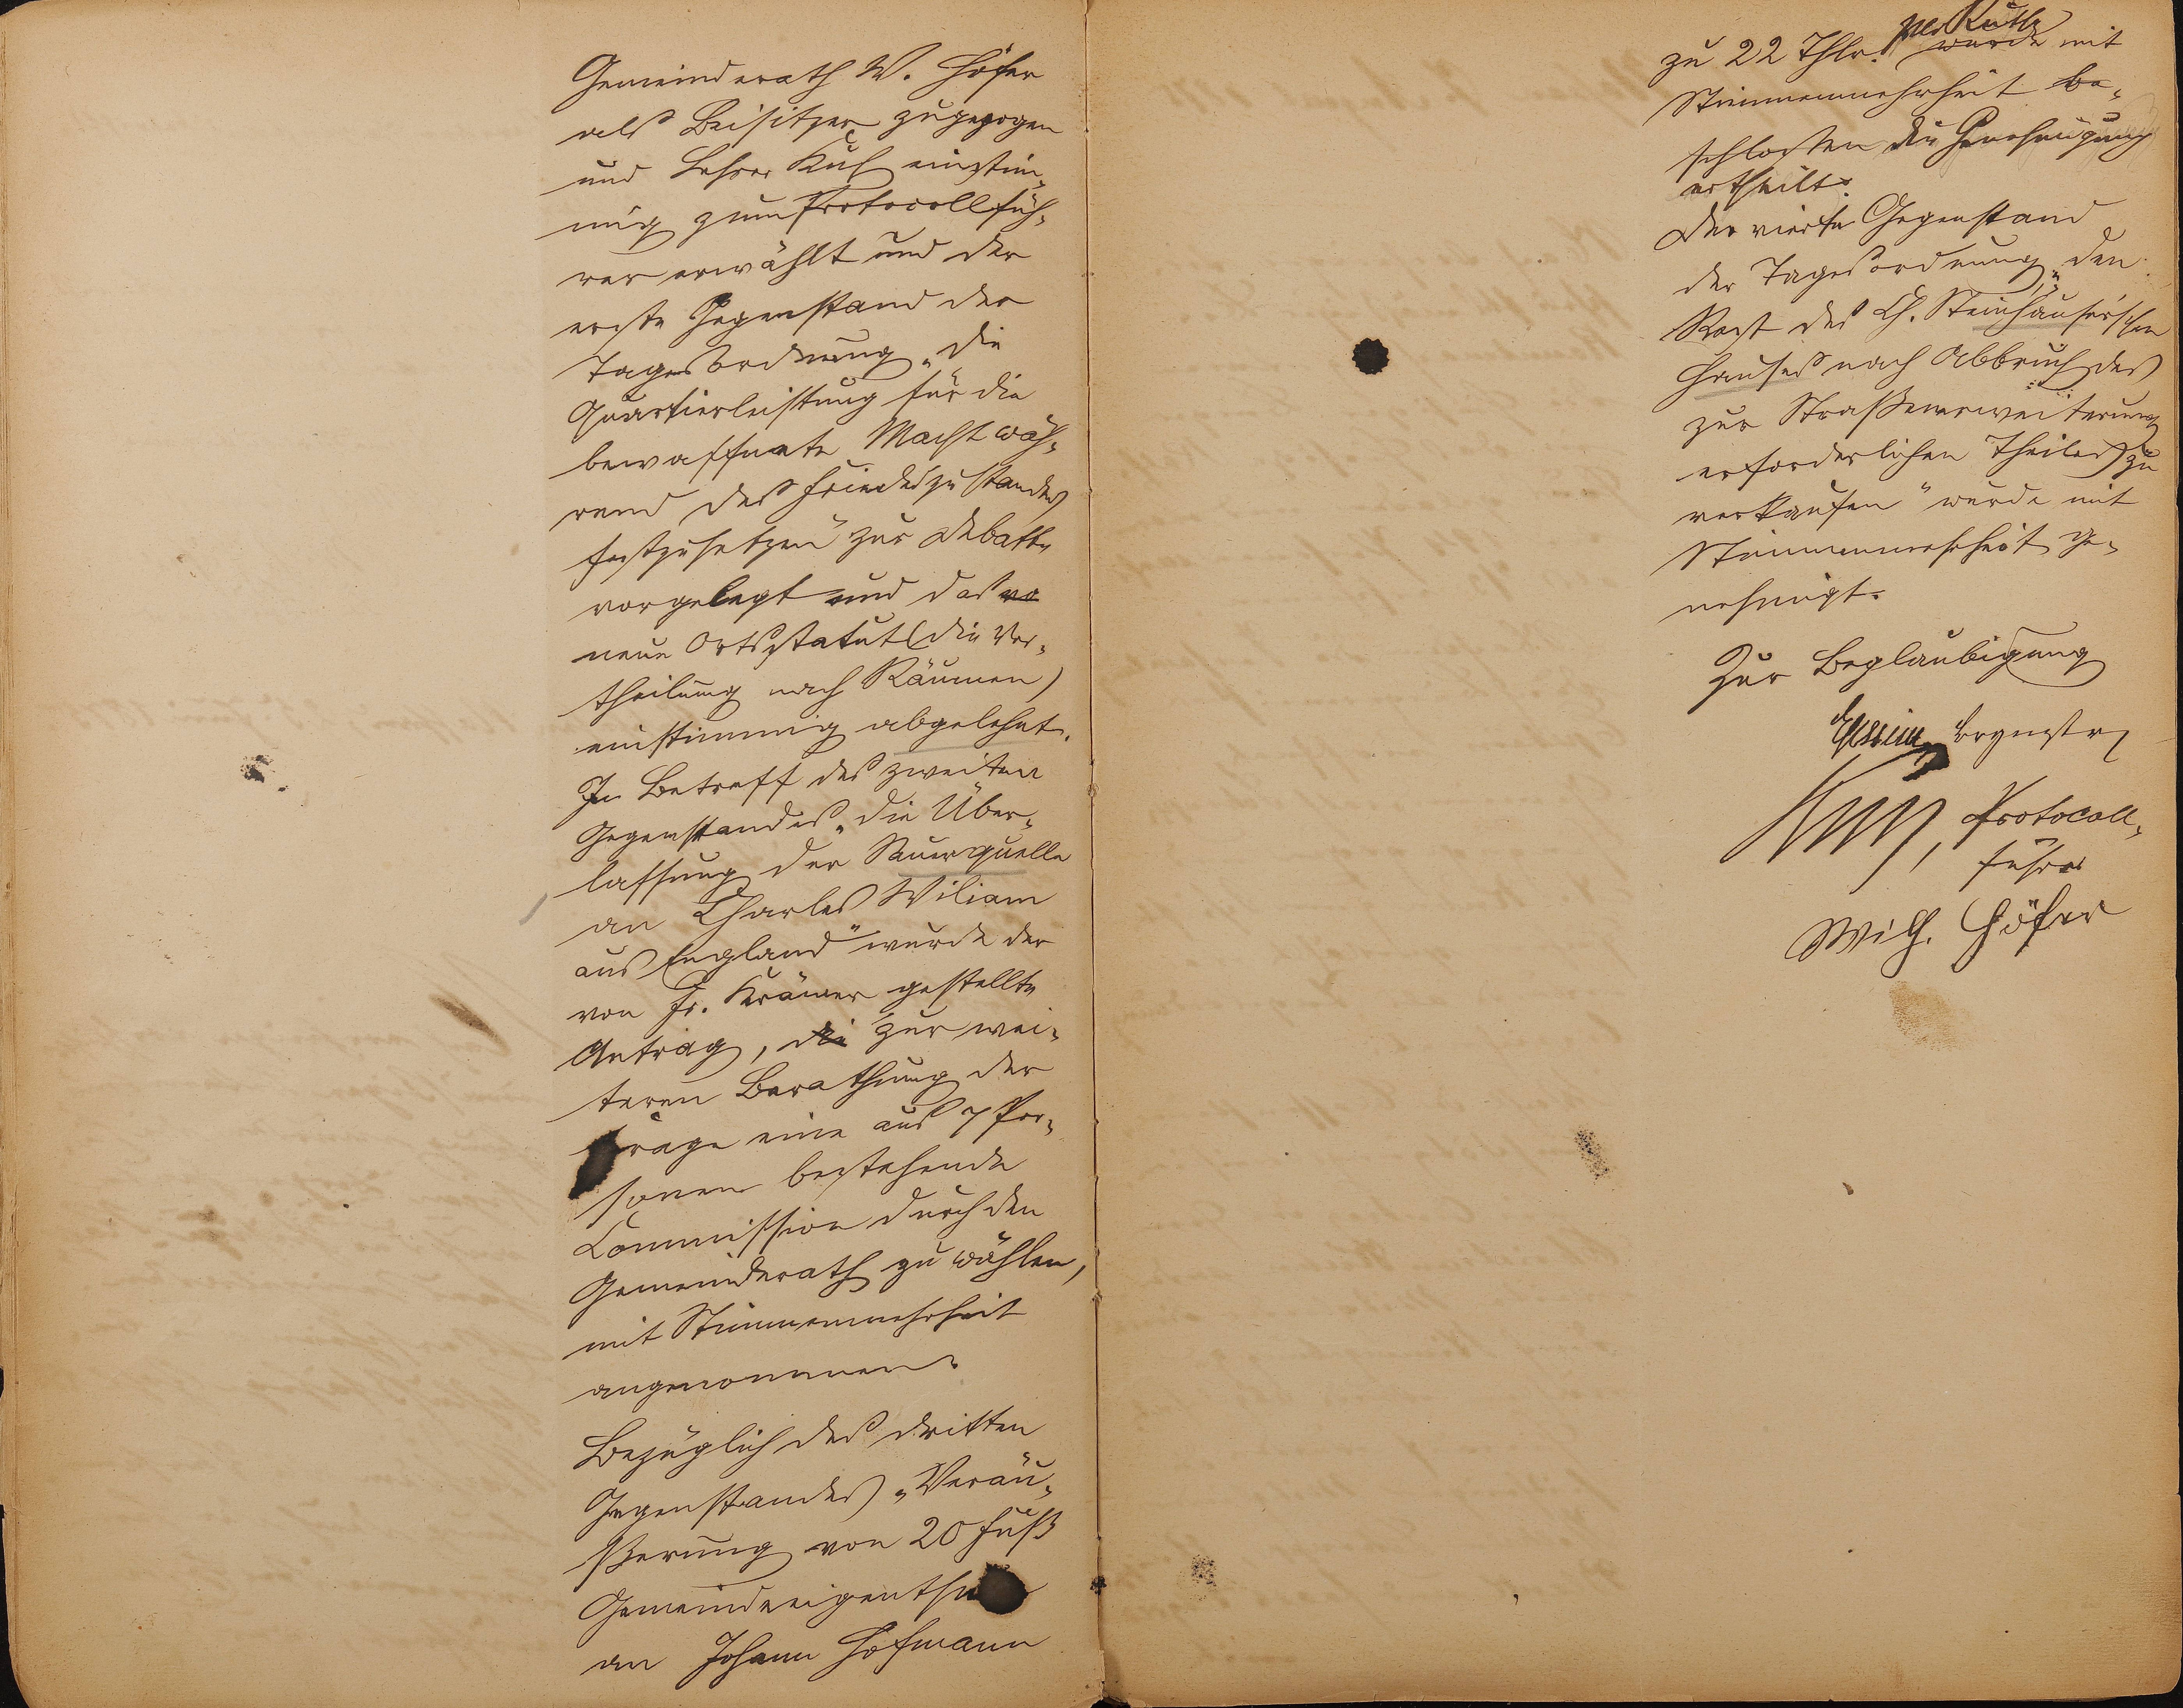 Gemeinderath W. Höfer
als Beisitzer zugezogen
und Lehrer Kuh einstim-
mig zum Protocollfüh-
rer erwählt und der
erste Gegenstand der
Tagesordnung „die
Quartierleistung für die
bewaffnete Macht wäh-
rend des Friedszustandes
festzusetzen" zur Debatte
vorgelegt und das
neue Ortsstatut (die Ver-
theilung nach Räumen)
einstimmig abgelehnt.
In Betreff des zweiten
Gegenstandes „die Über-
lassung der Sauerquelle
an Charles Wiliam
aus England" wurde der
von Fr. Krämer gestellte
Antrag, die zur wei-
teren Berathung der
Frage eine aus 7 Per-
sonen bestehende
Commission durch den
Gemeinderath zu wählen,
mit Stimmenmehrheit
angenommen.
Bezüglich des dritten
Gegenstandes „Veräu-
ßerung von 20 Fuß
Gemeindeeigenthum
an Johann Hofmann
zu 22 Thlr. per Ruthe wurde mit
Stimmenmehrheit be-
schlossen die Genehmigung
ertheilt.
Der vierte Gegenstand
der Tagesordnung, „den
Rest des Ch. Steinhäuser'schen
Hauses nach Abbruch des
zur Straßenerweiterung
erforderlichen Theiles zu
verkaufen" wurde mit
Stimmenmehrheit ge-
nehmigt.
Zur Beglaubigung
Brgmstr
Protocoll-
führer
Wilh. Höfer